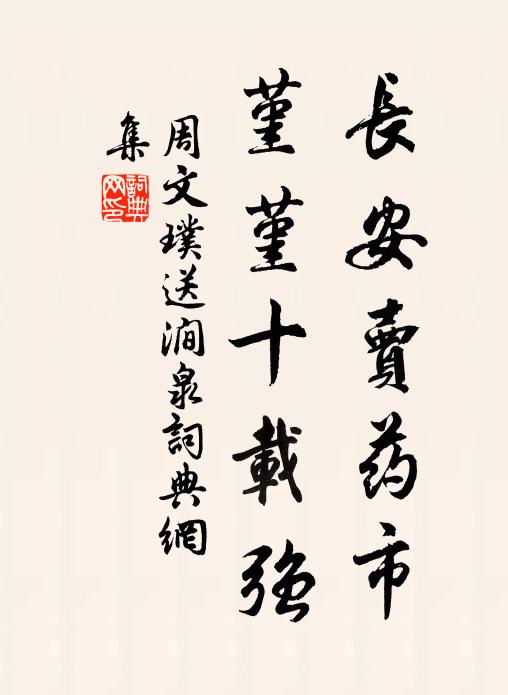 長安賣药市
堇堇十載強
周文璞送澗泉詞典網
集
詞典網印